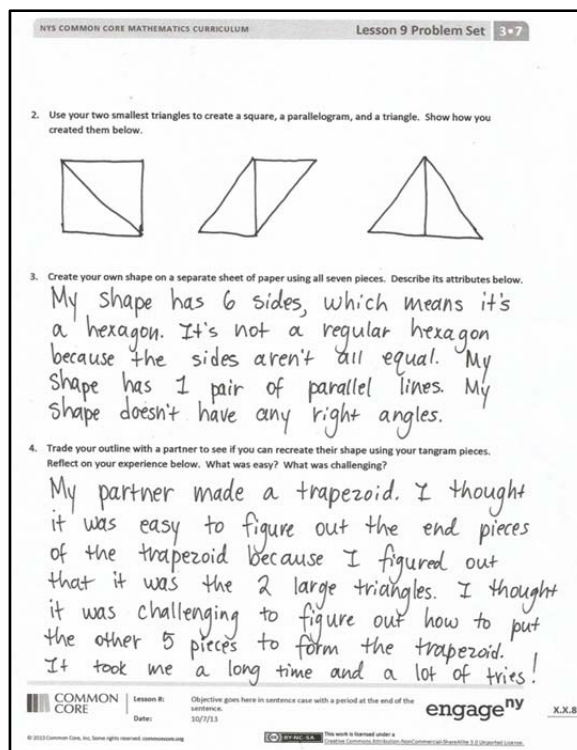 NYS COMMON CORE MATHEMATICS CURRICULUM
Lesson 9 Problem Set 3•7
2. Use your two smallest triangles to create a square, a parallelogram, and a triangle. Show how you
created them below.
3. Create your own shape on a separate sheet of paper using all seven pieces. Describe its attributes below.
My shape has 6 sides, which means it's
a hexagon. It's not a regular hexagon
because the sides aren't all equal. My
Shape has 1 pair of parallel lines. My
Shape doesn't have any right angles.
4. Trade your outline with a partner to see if you can recreate their shape using your tangram pieces.
Reflect on your experience below. What was easy? What was challenging?
My partner made a trapezoid. I thought
it was easy to figure out the end pieces
of the trapezoid because I figured out
that it was the 2 large triangles. I thought
it was challenging to figure out how to put
the other 5 pieces to form the trapezoid.
It took me a long time and a lot of tries!
COMMON
CORE
Lesson #:
Date:
Objective goes here in sentence case with a period at the end of the
sentence.
10/7/13
engage ny
X.X.8
© 2013 Common Core, Inc. Some rights reserved. commoncore.org
CC BY-NC-SA
This work is licensed under a
Creative Commons Attribution-NonCommercial-ShareAlike 3.0 Unported License.